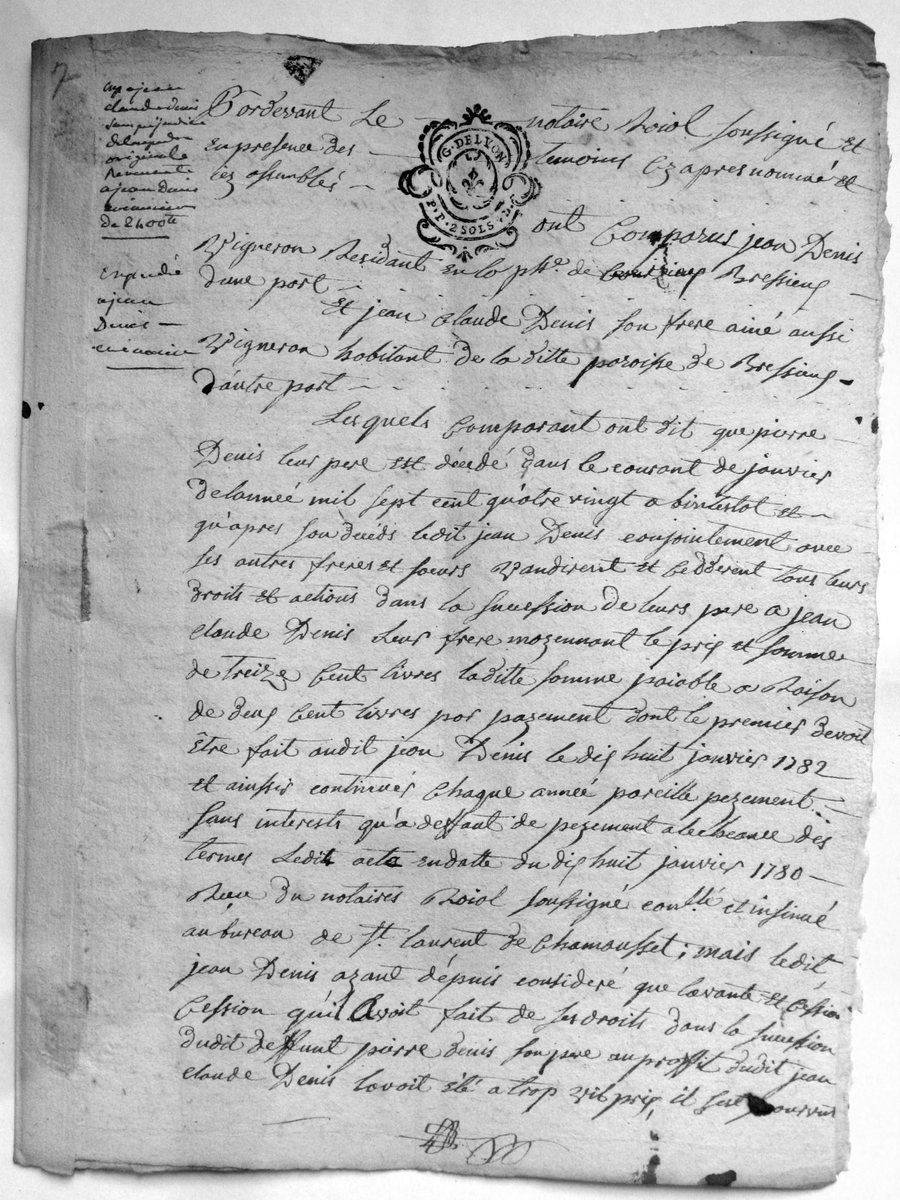 7
Expé a jean
claude denis
sans préjudice
originale
a jean Denis
de 2400tt
Expédié
a jean
Denis
G. DE LYON
P.P. 2 SOLS 4 D.
Pardevant Le notaire Roial soussigné et
en presence des temoins cy apres nommé et
ont Comparus jean Denis
Vigneron Residant en la psse. de Bressieug
dune part
Et jean claude Denis son frere ainé aussi
Vigneron habitant de la ditte paroisse de Bressieug
d'autre part
Les quels Comparant ont dit que pierre
Denis leur pere est décédé dans le courant de janvier
de lanneé mil sept cent quatre vingt abintestat et
qu'apres son décéds ledit jean Denis conjointement avec
ses autres freres et soeurs vandirent et cédderent tous leurs
droits et actions dans la succession de leurs pere a jean
claude Denis Leur frere moyennant le prix et somme
de treize Cent livres laditte somme paiable a Raison
de deux Cent livres par payement dont le premier devoit
être fait audit jean Denis le dix huit janvier 1782
et ainssi continués chaque anneé pareille pezement
sans interests qu'a deffaut de pezement a lecheance des
termes Ledit acte en datte du dix huit janvier 1780
Recu du notaires Roial soussigné conllé et insinué
au bureau de St. laurent de Chamousset; mais ledit
jean Denis ayant dépuis consideré que lavante et céssion
Cession qu'il Avoit fait de ses droits dans la succession
dudit deffunt pierre denis son pere au proffit dudit jean
claude Denis lavoit été a trop vil prix, il sest pourvus